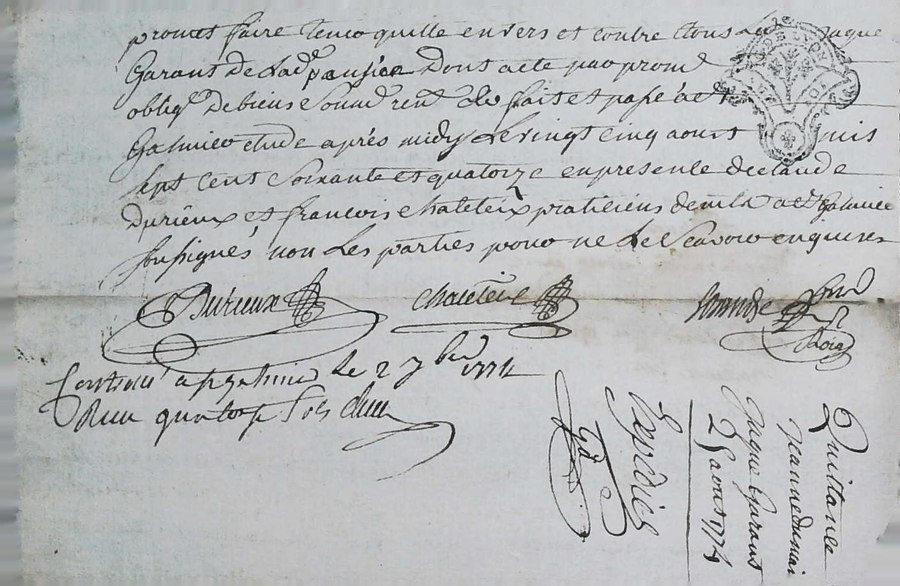 promet faire tenir quitte envers et contre tous Jaque
Garant de lad.e pansion Dont acte par prom
oblig.n de biens soum ren clo fait et passé a S.t
Galmier etude après midy le vingt cinq aoust mil
sept cent soixante et quatorze en presence de claude
Durieux et francois chateteix praticiens dem.ts a S.t Galmier
soussignés non les parties pour ne le scavoir enquises
Durieux chateteix
no.re Royal
Controllé a S.t galmier le 2 7bre 1774
Reçu quatorze sols
Quittance
jeanne dumai
Jaque Garant
25 aoust 1774
Expedié